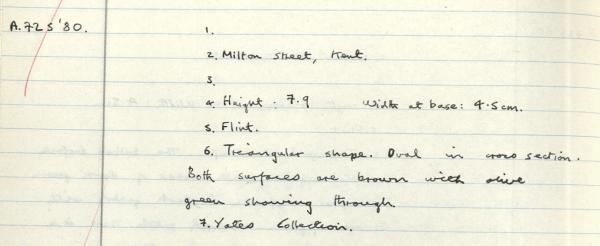 A.725'80.
1.
2. Milton Street, Kent.
3.
4. Height: 7.9 Width at base: 4.5cm.
5. Flint.
6. Triangular shape. Oval in cross section.
Both surfaces are brown with olive
green showing through
7. Yates Collection.